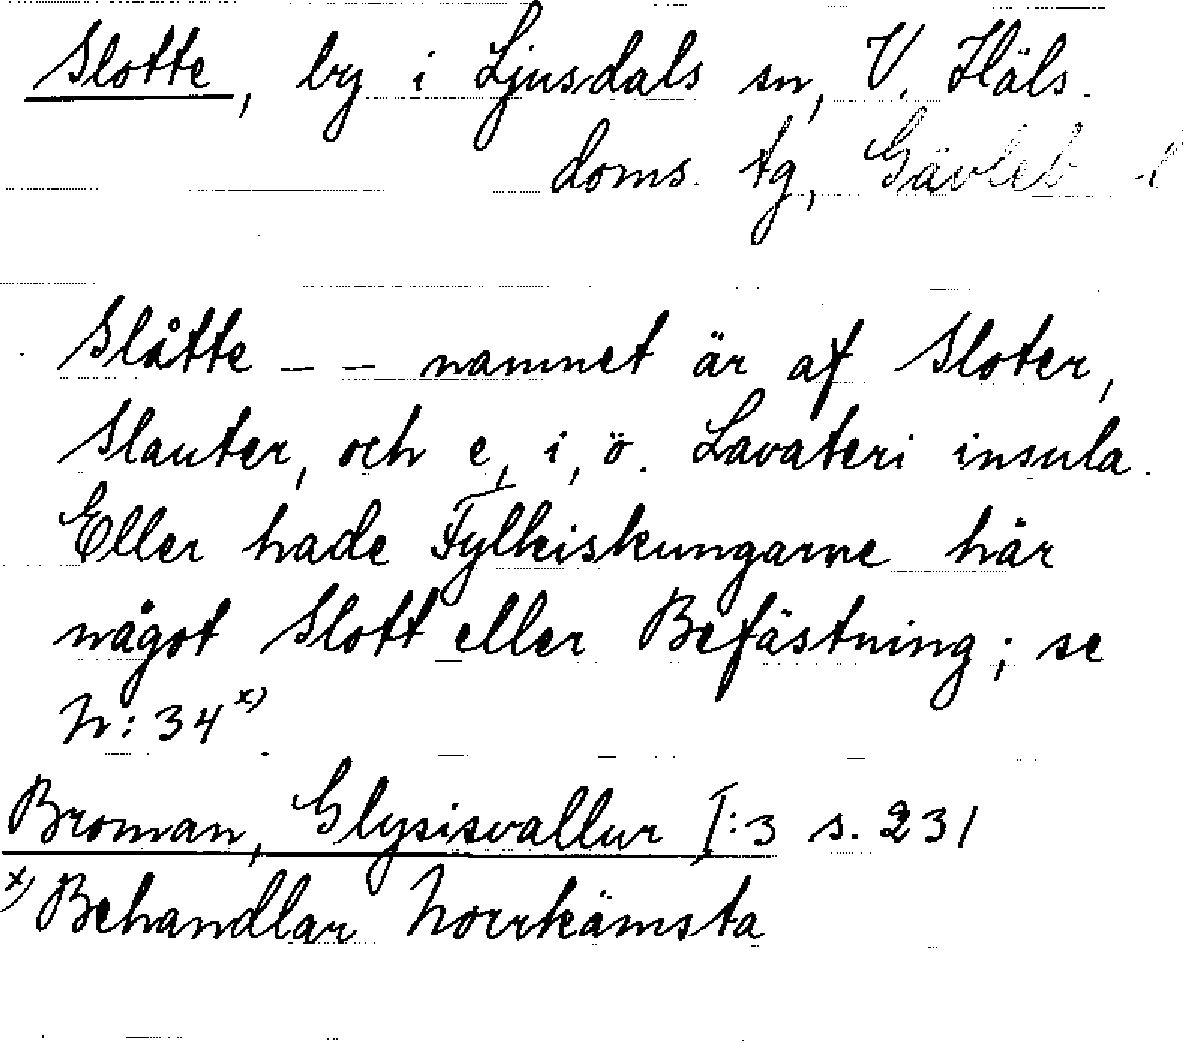 Slotte, by i Ljusdals sn, V. Häls.
doms. tg, Gävleb. l
Slåtte - - namnet är af Sloter,
Slauter, och e, i, ö. Lavateri insula.
Eller hade Fylkiskungarne här
något Slott eller Befästning; se
N: 34 x)
Broman, Glysisvallur I:3 s. 231
x) Behandlar Norrkämsta